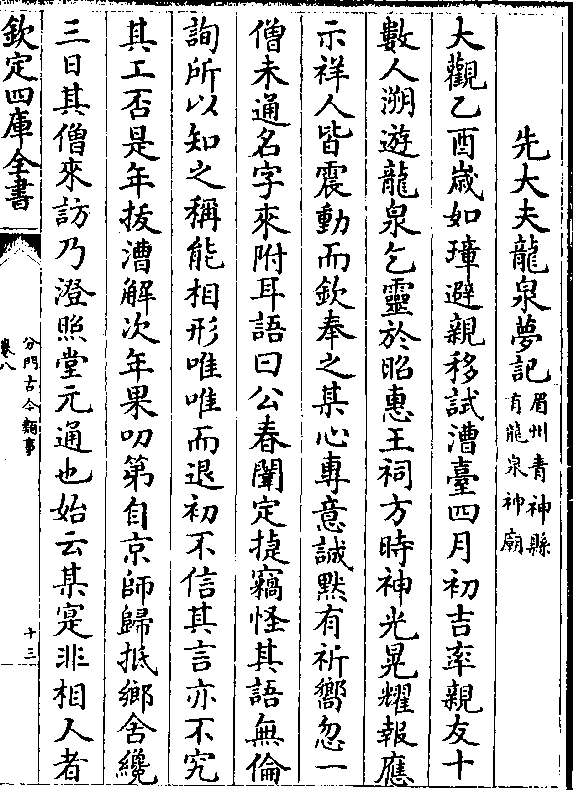 先大夫龍泉夢記眉州青神縣
有龍泉神廟
大觀乙酉歲如璋避親移試漕臺四月初吉率親友十
數人溯遊龍泉乞靈於昭惠王祠方時神光晃耀報應
示祥人皆震動而欽奉之某心專意誠默有祈嚮忽一
僧未通名字來附耳語曰公春闈定捷竊怪其語無倫
詢所以知之稱能相形唯唯而退初不信其言亦不究
其工否是年拔漕解次年果叨第自京師歸抵鄉舍纔
三日其僧來訪乃澄照堂元通也始云某寔非相人者
欽定四庫全書
分門古今類事
卷八
十三